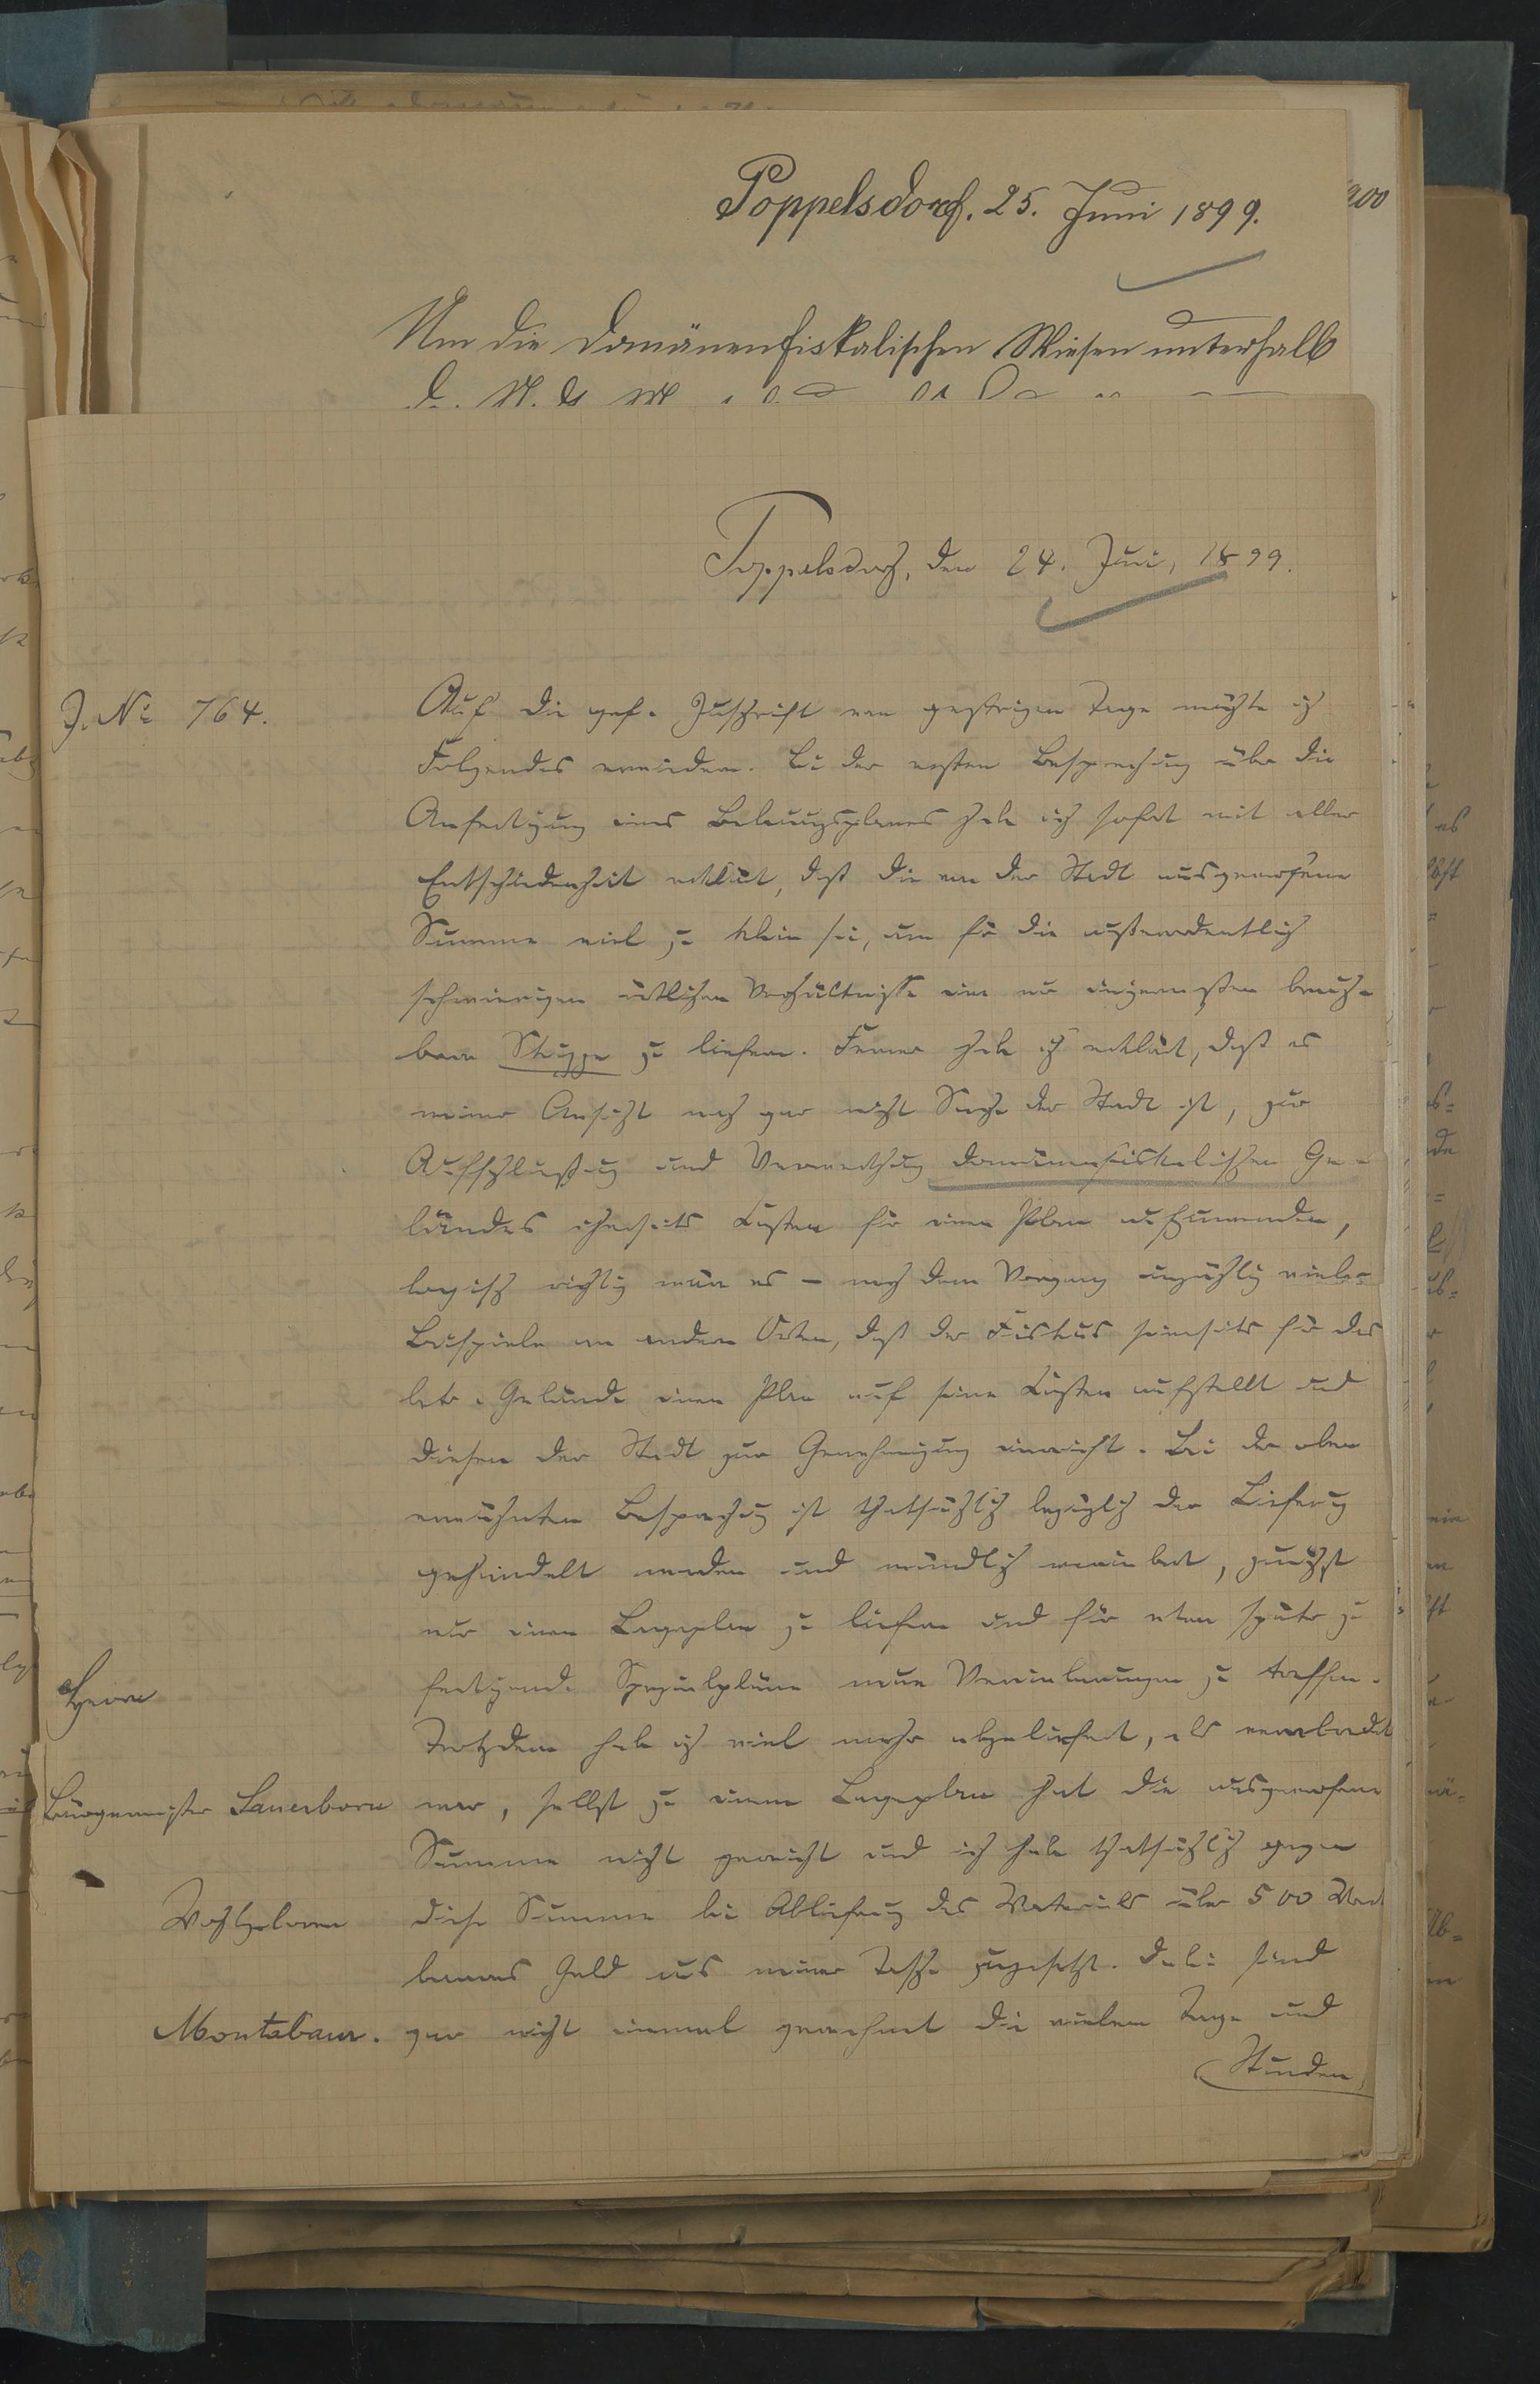 Poppelsdorf. 25. Juni 1899.
200
Um die domänenfiskalischen Wiesen unterhalb
Poppelsdorf, den 24. Juni, 1899.
J. No 764.
Auf die gef. Zuschrift vom gestrigen Tage möchte ich
Folgendes erwidern. Bei der ersten Besprechung über die
Anfertigung eines Bebauungsplanes habe ich sofort mit aller
Entschiedenheit erklärt, daß die von der Stadt ausgeworfene
Summe viel zu klein sei, um für die außerordentlich
schwierigen örtlichen Verhältnisse eine nur einigermaßen brauch-
bare Skizze zu liefern. Ferner habe ich erklärt, daß es
meiner Ansicht nach gar nicht Sache der Stadt ist, zur
Aufschließung und Verwerthung domänenfiskalischen Ge-
ländes ihrerseits Kosten für einen Plan aufzuwenden,
logisch richtig wäre es – nach dem Vorgang unzählig vieler
Beispiele an andern Orten, daß der Fiskus seinerseits für das
betr. Gelände einen Plan auf seine Kosten aufstellt und
diesen der Stadt zur Genehmigung einreicht. Bei der oben
erwähnten Besprechung ist thatsächlich bezüglich der Lieferung
gehandelt worden und mündlich vereinbart, zunächst
nur einen Lageplan zu liefern und für etwa später zu
fertigende Spezialpläne neue Vereinbarungen zu treffen.
Trotzdem habe ich viel mehr abgeliefert, als verabredet
war, selbst zu einem Lageplan hat die ausgeworfene
Summe nicht gereicht und ich habe thatsächlich gegen
diese Summe bei Ablieferung des Materials über 500 Mark
baares Geld aus meiner Tasche zugesetzt. Dabei sind
gar nicht einmal gerechnet die vielen Tage und
Stunden
Herrn
Bürgermeister Sauerborn
Wohlgeboren
Montabaur.